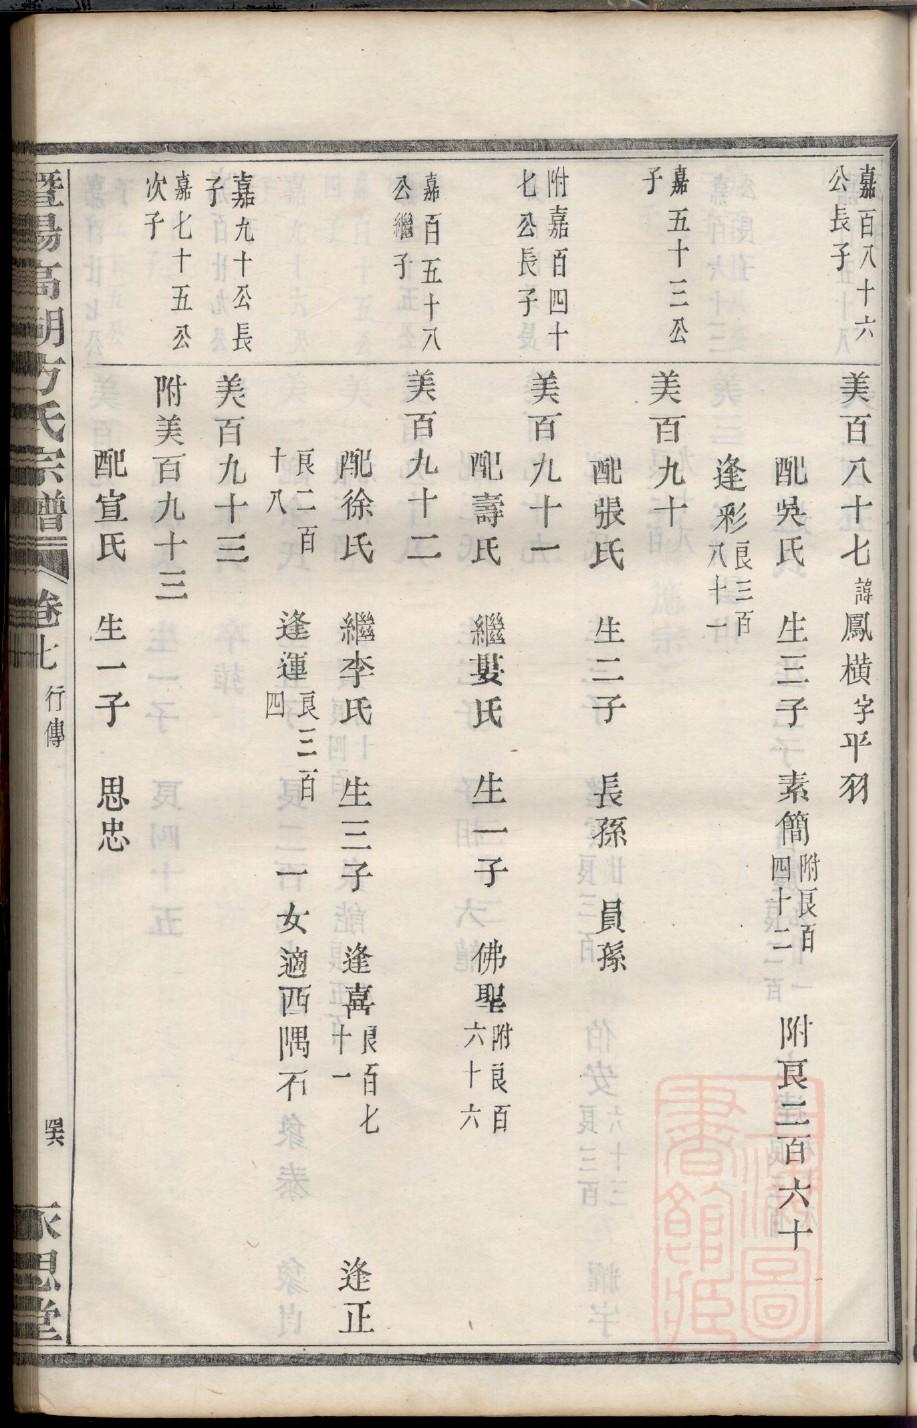 嘉百八十六
公長子
美百八十七諱鳳橫字平羽
配吳氏 生三子 素簡附艮百四十二 附艮二百六十
逢彩艮三百八十一
嘉五十三公
子
美百九十
配張氏 生二子 長孫 員孫
附嘉百四十
七公長子
美百九十一
配壽氏 繼婁氏 生一子 佛聖附良百六十六
嘉百五十八
公繼子
美百九十二
配徐氏 繼李氏 生三子 逢喜艮百七十一 逢正
艮二百十八 逢運艮三百四 一女適西隅石
嘉九十公長
子
美百九十三
嘉七十五公
次子
附美百九十三
配宣氏 生一子 思忠
暨陽高湖方氏宗譜 卷七 行傳 永思堂